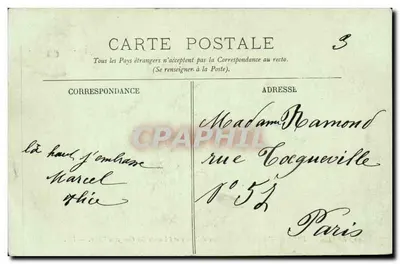 CARTE POSTALE
3
Tous les Pays étrangers n'acceptent pas la Correspondance au recto.
(Se renseigner à la Poste).
CORRESPONDANCE
ADRESSE
là haut j'embrasse
Marcel
Alice
CPAPHIL
Madame Ramond
rue Tocqueville
N° 52
Paris